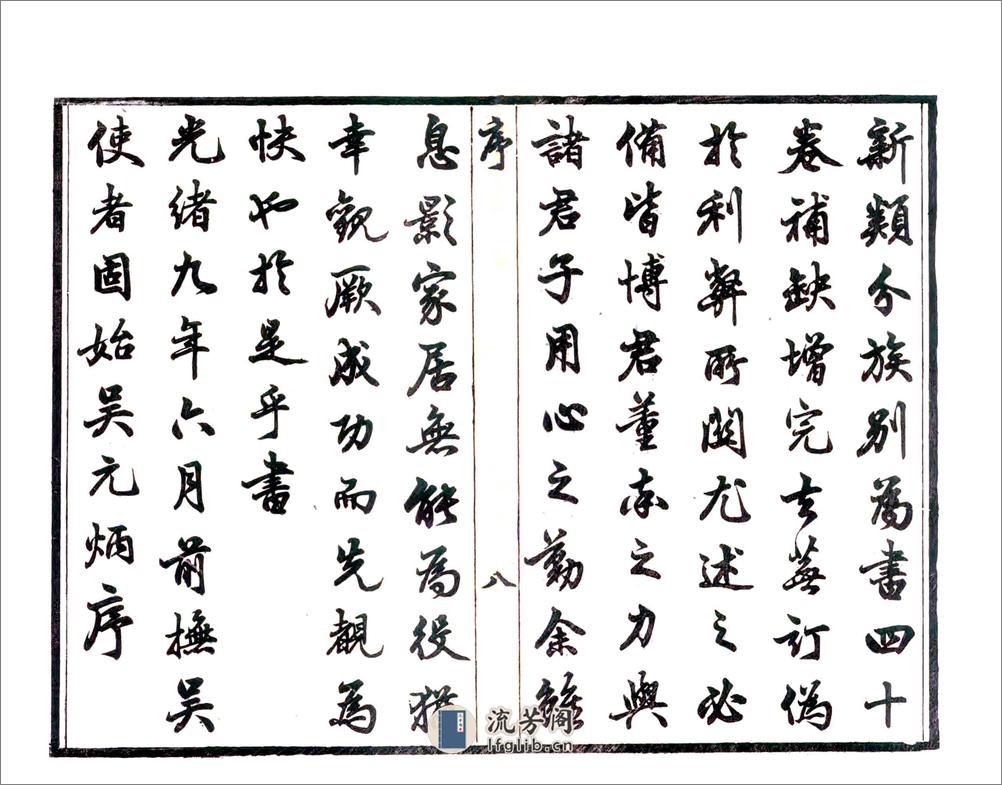 新類分族別為書四十
卷補缺增完去蕪訂偽
於利弊所關尤述之必
備皆博君董率之力與
諸君子用心之勤余雖
序
八
息影家居無能為役猶
幸觀厥成功而先覩為
快也於是乎書
光緒九年六月前撫吳
使者固始吳元炳序
流芳阁
lfglib.cn